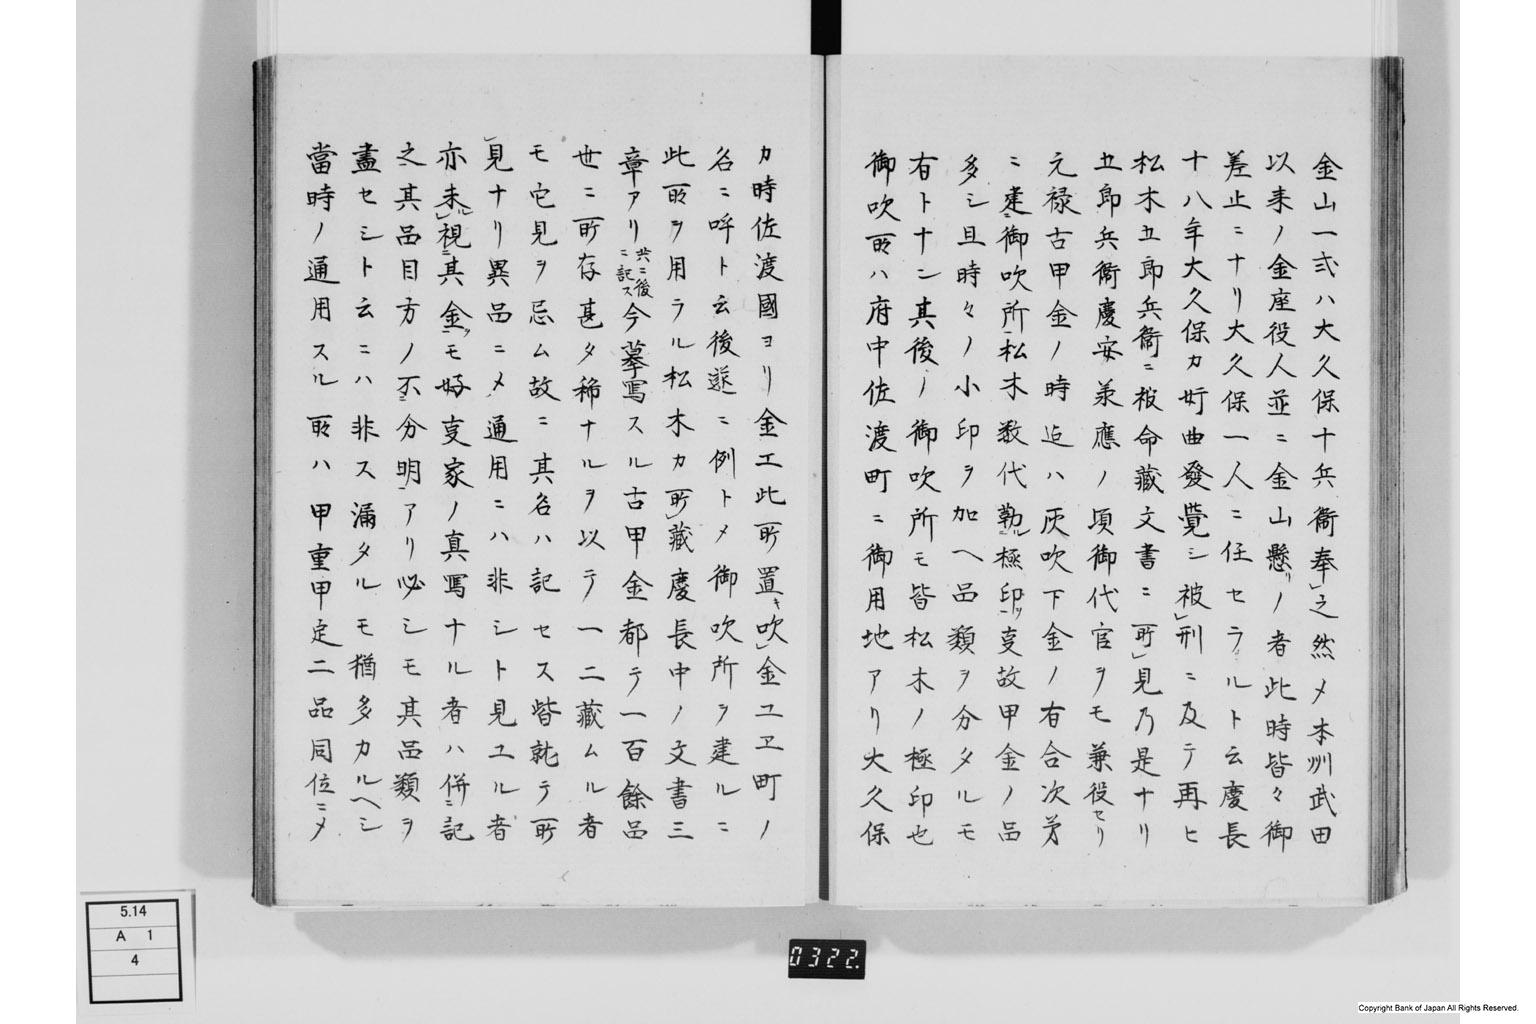 金山一式ハ大久保十兵衞奉之然メ本州武田
以来ノ金座役人並ニ金山懸リノ者此時皆々御
差止ニナリ大久保一人ニ任セラルト云慶長
十八年大久保カ奸曲發覺シ被刑ニ及テ再ヒ
松木五郎兵衞ニ被命藏文書ニ所見乃是ナリ
五郎兵衞慶安承應ノ頃御代官ヲモ兼役セリ
元禄古甲金ノ時迄ハ灰吹下金ノ有合次第
ニ建御吹所松木数代勤ル極印ヲ㕝故甲金ノ品
多シ且時々ノ小印ヲ加ヘ品類ヲ分タルモ
有トナン其後ノ御吹所モ皆松木ノ極印也
御吹所ハ府中佐渡町ニ御用地アリ大久保
カ時佐渡國ヨリ金工此所置キ吹金ユヱ町ノ
名ニ呼ト云後遂ニ例トメ御吹所ヲ建ルニ
此所ヲ用ラル松木カ所藏慶長中ノ文書三
章アリ共ニ後ニ記ス今摹寫スル古甲金都テ一百餘品
世ニ所存甚タ稀ナルヲ以テ一二藏ムル者
モ它見ヲ忌ム故ニ其名ハ記セス皆就テ所
見ナリ異品ニメ通用ニハ非シト見ユル者
亦未視其金ヲモ好㕝家ノ真寫ナル者ハ併ニ記
之其品目方ノ不分明アリ必シモ其品類ヲ
盡セシト云ニハ非ス漏タルモ猶多カルヘシ
當時ノ通用スル所ハ甲重甲定二品同位ニメ
5.14
A 1
4
0322.
Copyright Bank of Japan All Rights Reserved.